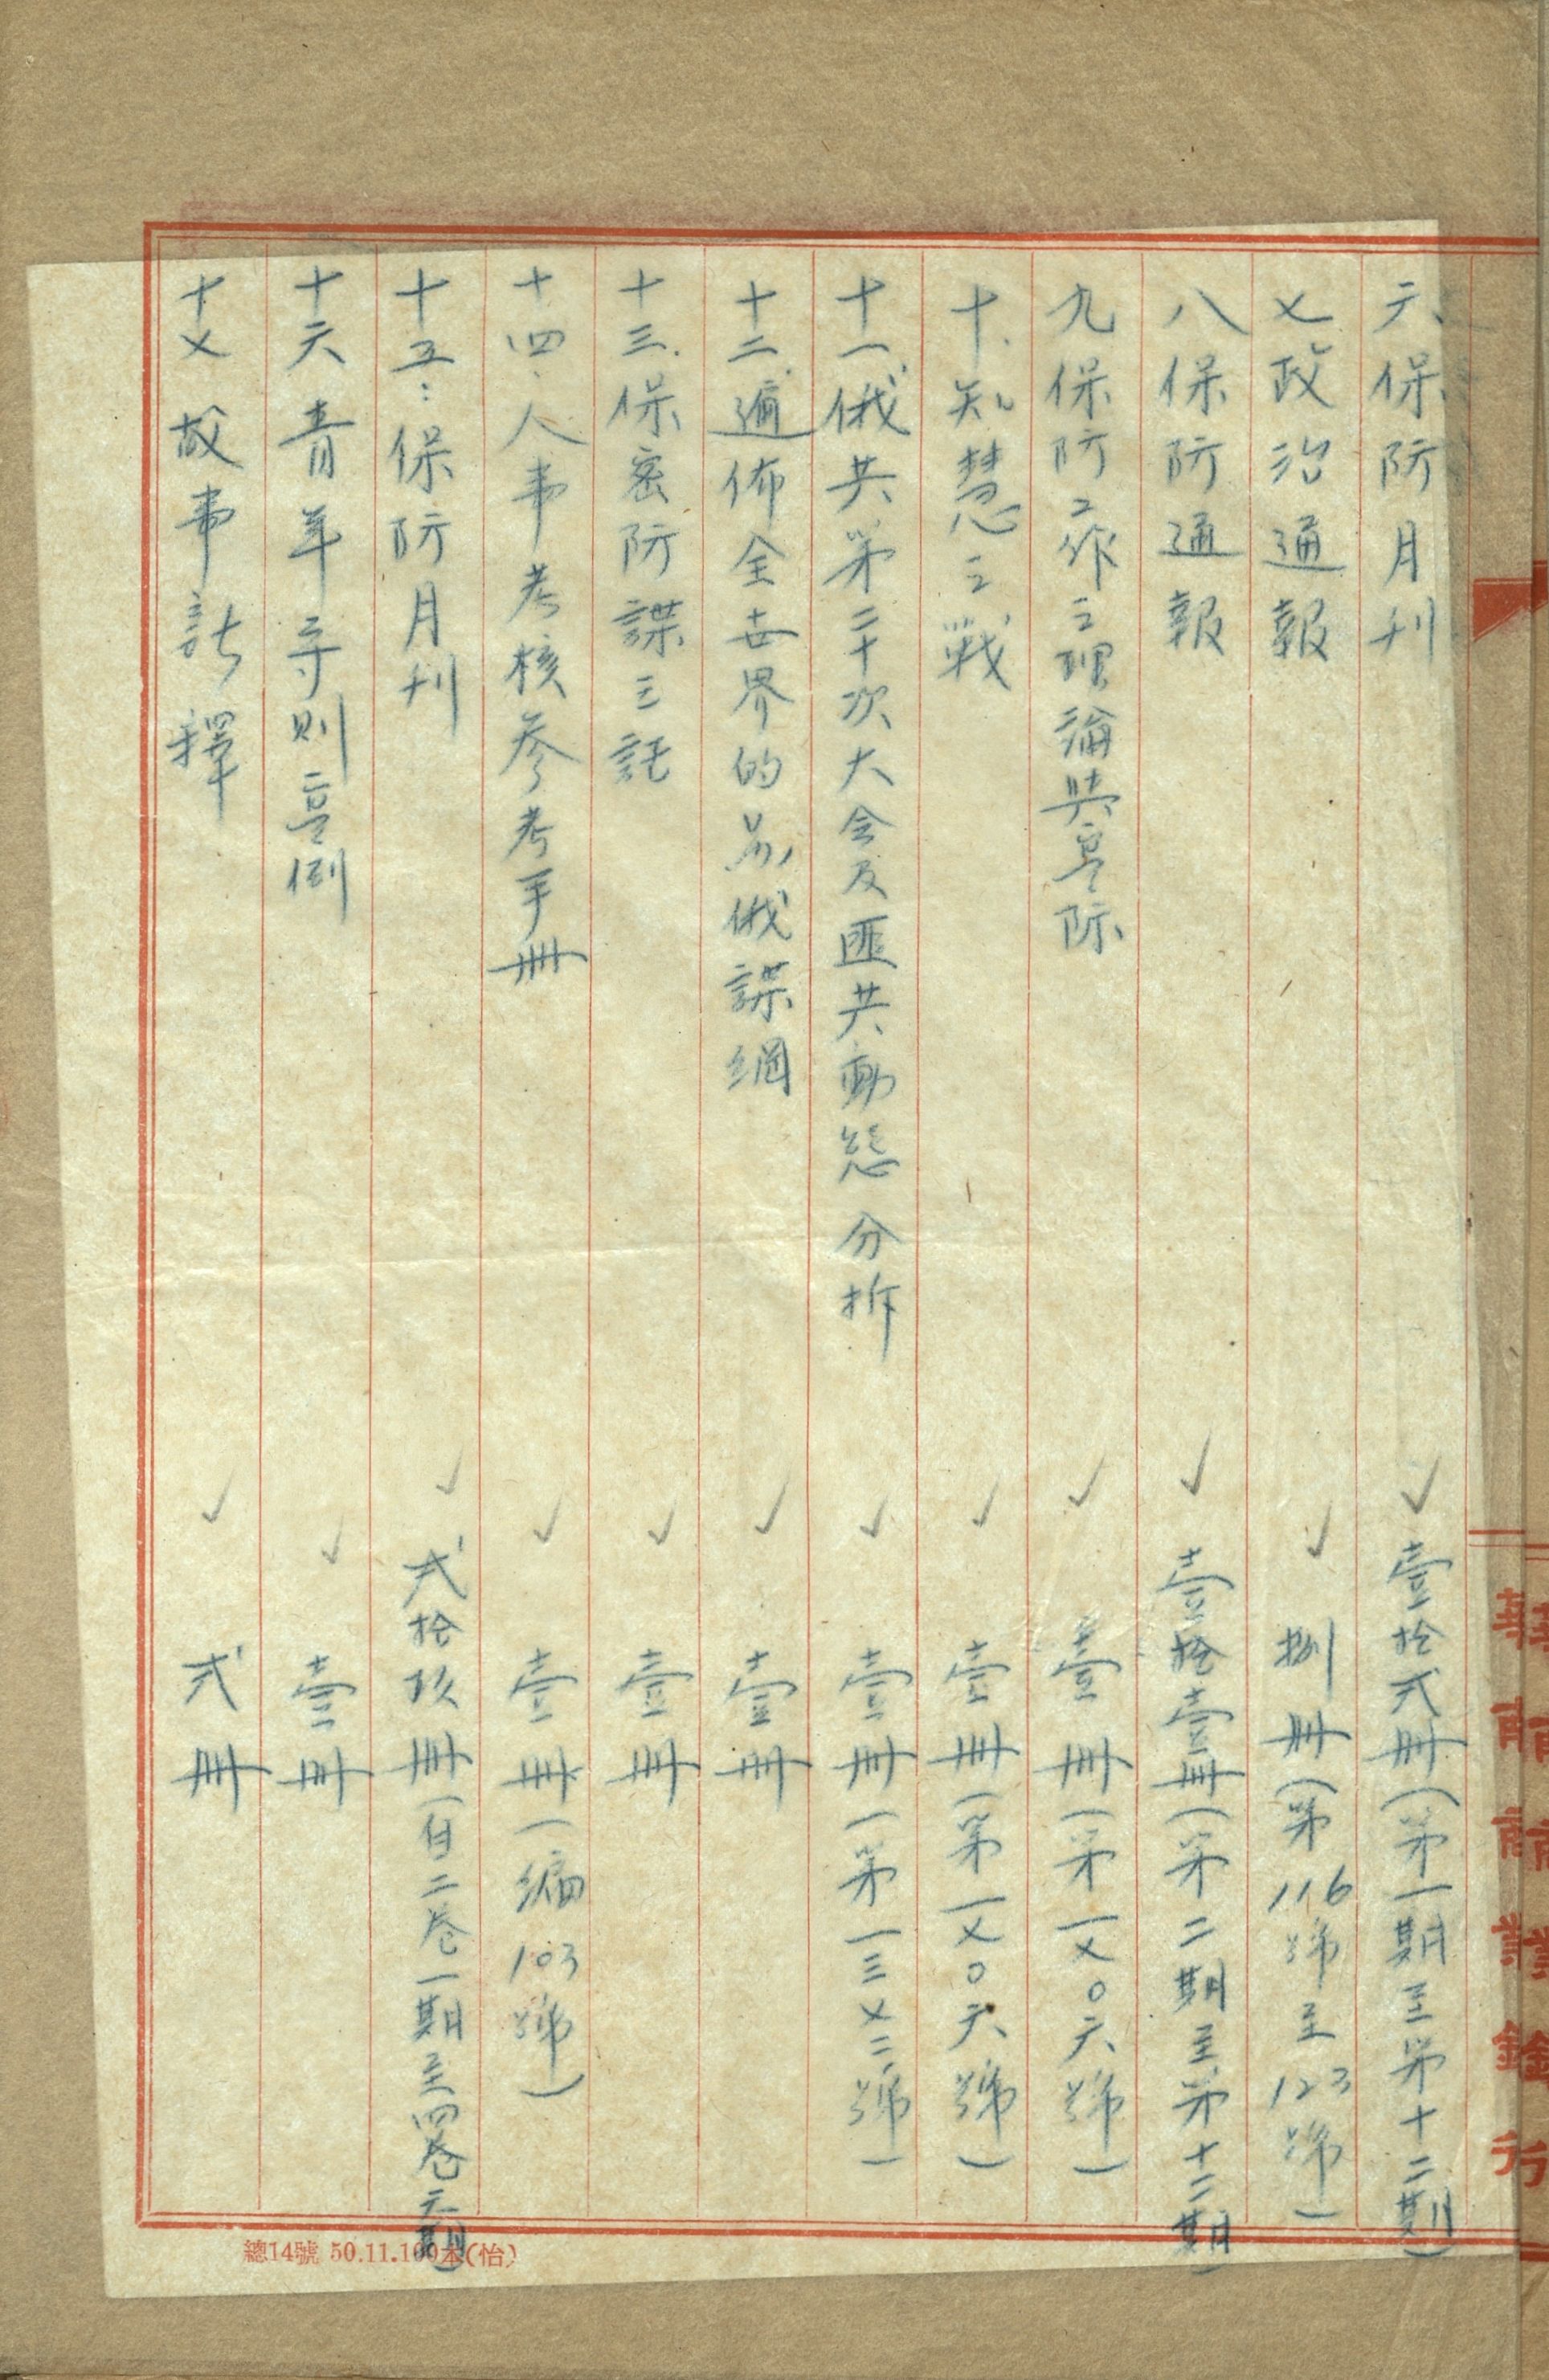 六、保防月刊 ✓ 壹拾弍冊(第一期至第十二期)
七政治通報 ✓ 捌冊(第116號至123號)
八保防通報 ✓ 壹拾壹冊(第二期至第十二期)
九保防工作之理論與實際 ✓ 壹冊(第一七〇六號)
十、知慧之戰 ✓ 壹冊(第一七〇六號)
十一、俄共第二十次大会及匪共動態分析 ✓ 壹冊(第一三七二號)
十二、遍佈全世界的苏俄諜網 ✓ 壹冊
十三、保密防諜三話 ✓ 壹冊
十四、人事考核参考手冊 ✓ 壹冊(編103號)
十五:保防月刊 ✓ 弍拾玖冊(自二卷一期至四卷六期)
十六青年守則實例 ✓ 壹冊
十七故事註釋 ✓ 弍冊
華南商業銀行
總14號 50.11.100本(怡)